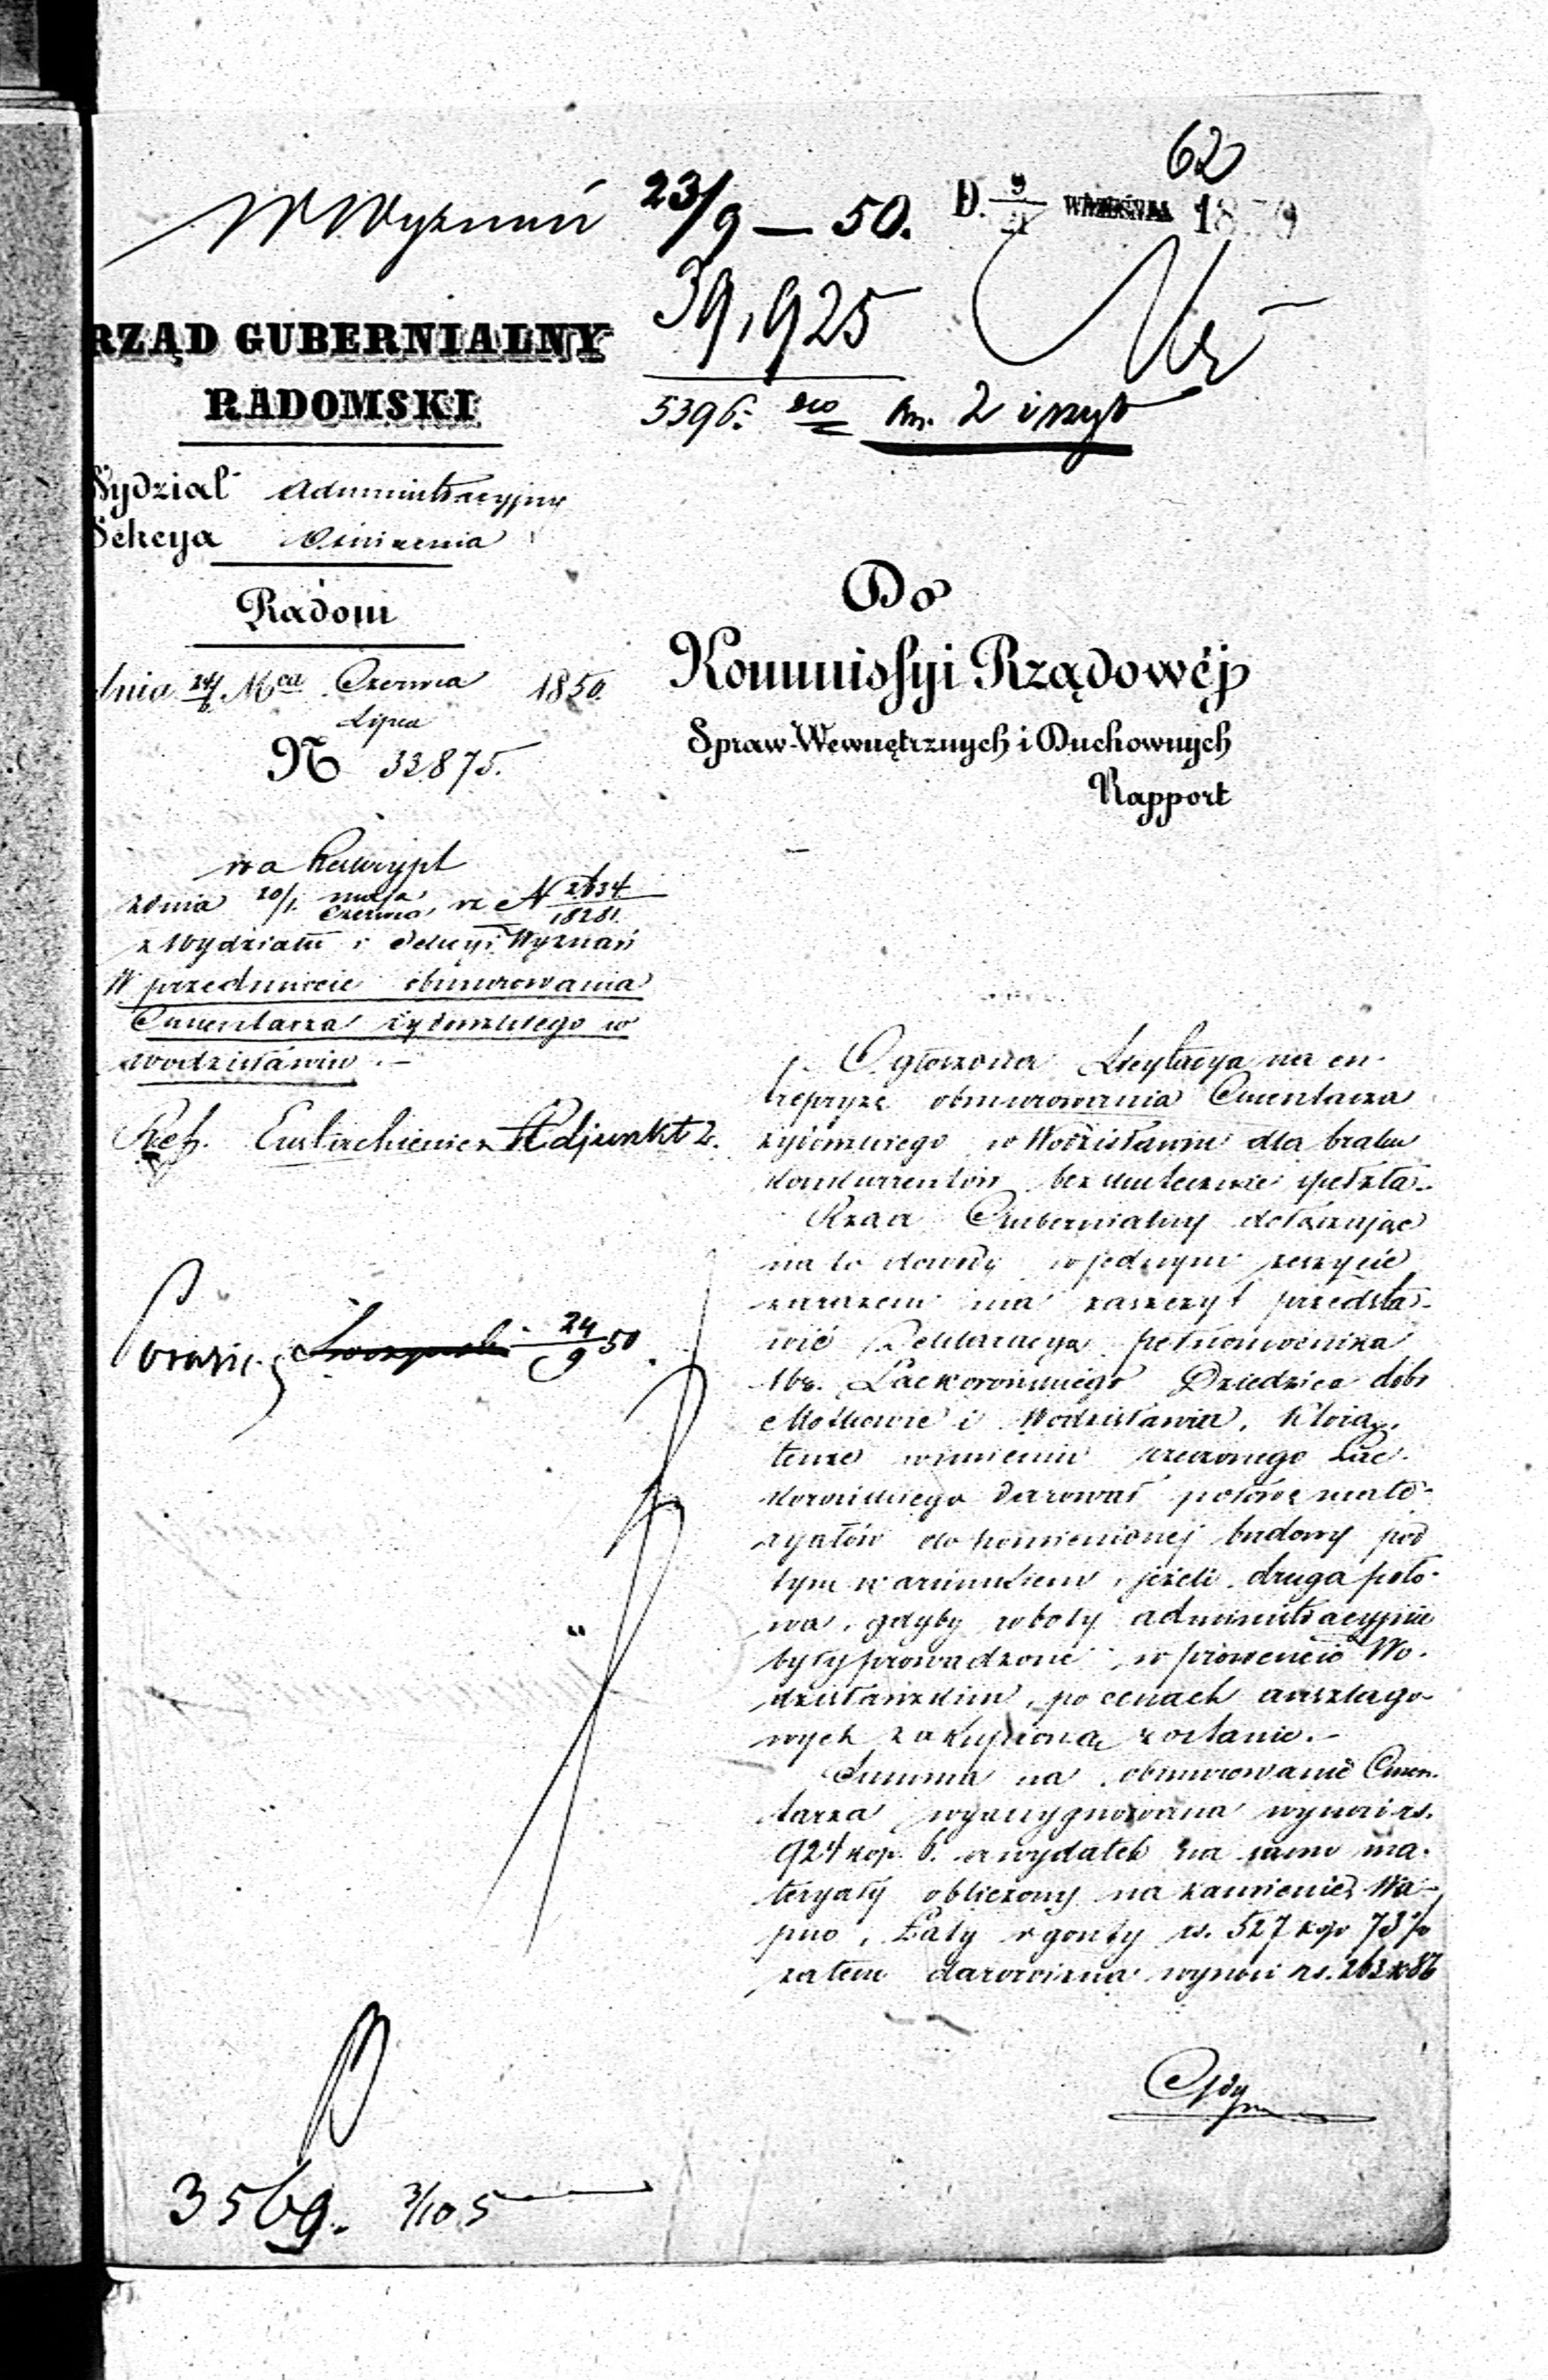 62
W Wyznań 23/9 – 50.
39,925
5396.
RZĄD GUBERNIALNY
RADOMSKI
Wydział Administracyjny
Sekcya
Radom
dnia Mca Czerwca 1850.
Lipca
N 33875.
na Reskrypt
z dnia 20/1. maja
Czerwca, N
18281.
z Wydziału i Sekcyi Wyznań
W przedmiocie obmurowania
Cmentarza żydowskiego w
Wodzisławiu.
Adjunkt
24/9 50.
Do
Kommissyi Rządowéj
Spraw Wewnętrznych i Duchownych
Rapport
Ogłoszona Licytacya na en-
trepryzę obmurowania Cmentarza
żydowskiego w Wodzisławiu dla braku
konkurrentów bezskutecznie spełzła.
Rząd Gubernialny dołączając
na to dowody w jednym zeszycie
zarazem ma zaszczyt przedsta-
wić Deklaracyą pełnomocnika
Lackorońskiego Dziedzica dóbr
i Wodzisławia, którą
tenże w imieniu rzeczonego Lac-
korońskiego darował połowę mate-
ryałów do pomienionej budowy pod
tym warunkiem, jeżeli druga poło-
wa, gdyby roboty administracyjnie
były prowadzone, w prowencie Wo-
dzisławskim, po cenach anszlago-
wych zakupioną zostanie.
Summa na obmurowanie Cmen-
tarza wyassygnowana wynosi rs.
924 kop. 6. a wydatek na samo ma-
teryały obliczony na kamienie, Wa-
pno, Łaty i gonty rs. 527 kop 73½
zatem darowizna wynosi rs. 263 k 86
Gdy
3569. 3/10 5